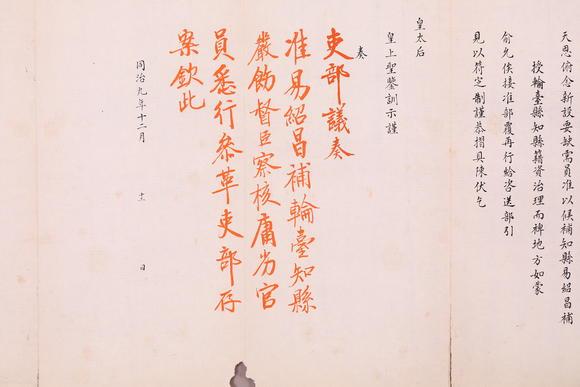 天恩俯念新設要缺需員准以候補知縣易紹昌補
授輪臺縣知縣籍資治理而裨地方如蒙
俞允俟接准部覆再行給咨送部引
見以符定制謹恭摺具陳伏乞
皇太后
皇上聖鑒訓示謹
奏
吏部議奏
准易紹昌補輪臺知縣
嚴飭督臣察核庸劣官
員悉行參革吏部存
案欽此
同治九年十二月 十一 日